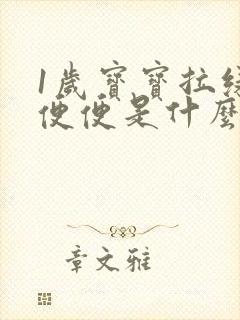 1歲寶寶拉綠
便便是什麼
章文雅